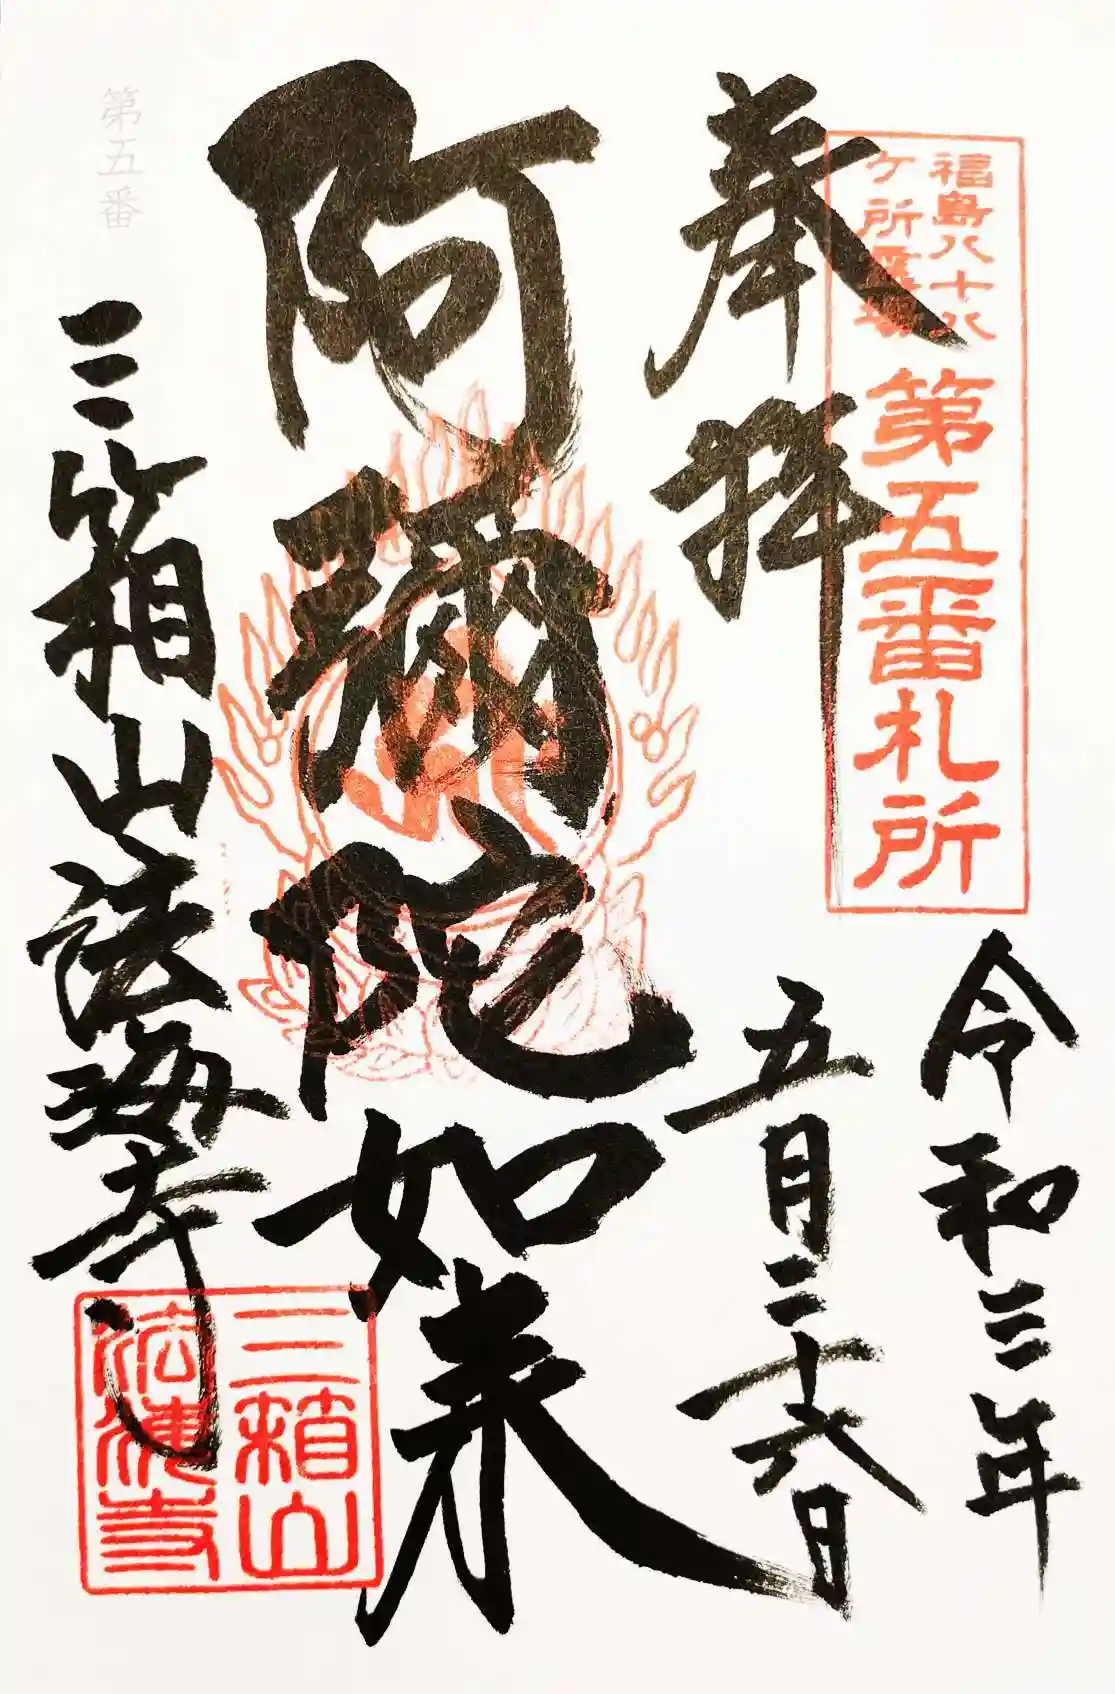 福島八十八
ケ所霊場
第五番札所
奉拝
令和三年
五月二十六日
阿彌陀如来
第五番
三箱山法海寺
三箱山
法海寺